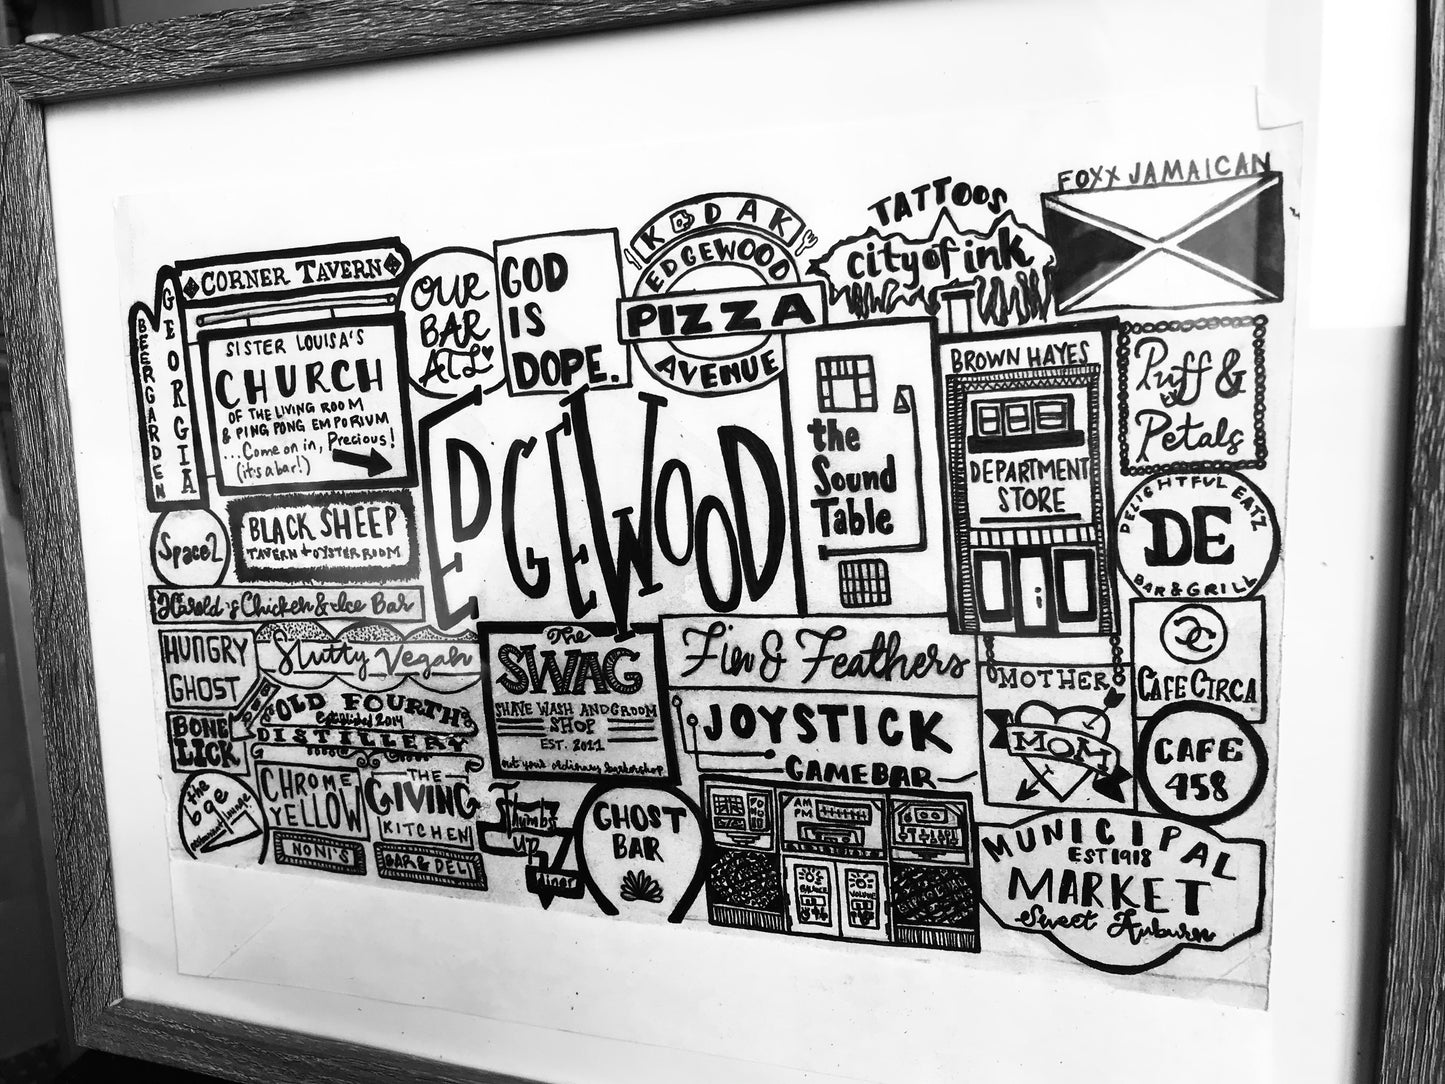 CORNER TAVERN
GEORGIA
BEERGARDEN
SISTER LOUISA'S
CHURCH
OF THE LIVING ROOM
& PING PONG EMPORIUM
...Come on in, Precious!
(it's a bar!)
OUR
BAR
ATL
GOD
IS
DOPE.
KODAK
EDGEWOOD
PIZZA
AVENUE
TATTOOS
city of ink
FOXX JAMAICAN
EDGEWOOD
the
Sound
Table
BROWN HAYES
DEPARTMENT
STORE
Puff &
Petals
DELIGHTFUL EATZ
DE
BAR & GRILL
Space2
BLACK SHEEP
TAVERN + OYSTER ROOM
Harold's Chicken & Ice Bar
HUNGRY
GHOST
Slutty Vegan
BONE
LICK
BBQ
OLD FOURTH
Established 2014
DISTILLERY
The
SWAG
SHAVE WASH AND GROOM
SHOP
EST. 2011
not your ordinary barbershop
Fin & Feathers
JOYSTICK
GAMEBAR
MOTHER
MOM
CAFE CIRCA
CAFE
458
the
bge
CHROME
YELLOW
NONI'S
THE
GIVING
KITCHEN
BAR & DELI
Thumbs
UP
diner
GHOST
BAR
AM
PM
BALANCE
VOLUME
MUNICIPAL
EST 1918
MARKET
Sweet Auburn